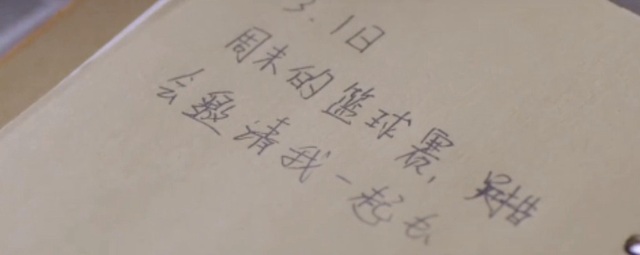 3.1日
周末的篮球赛,
会邀请我一起去